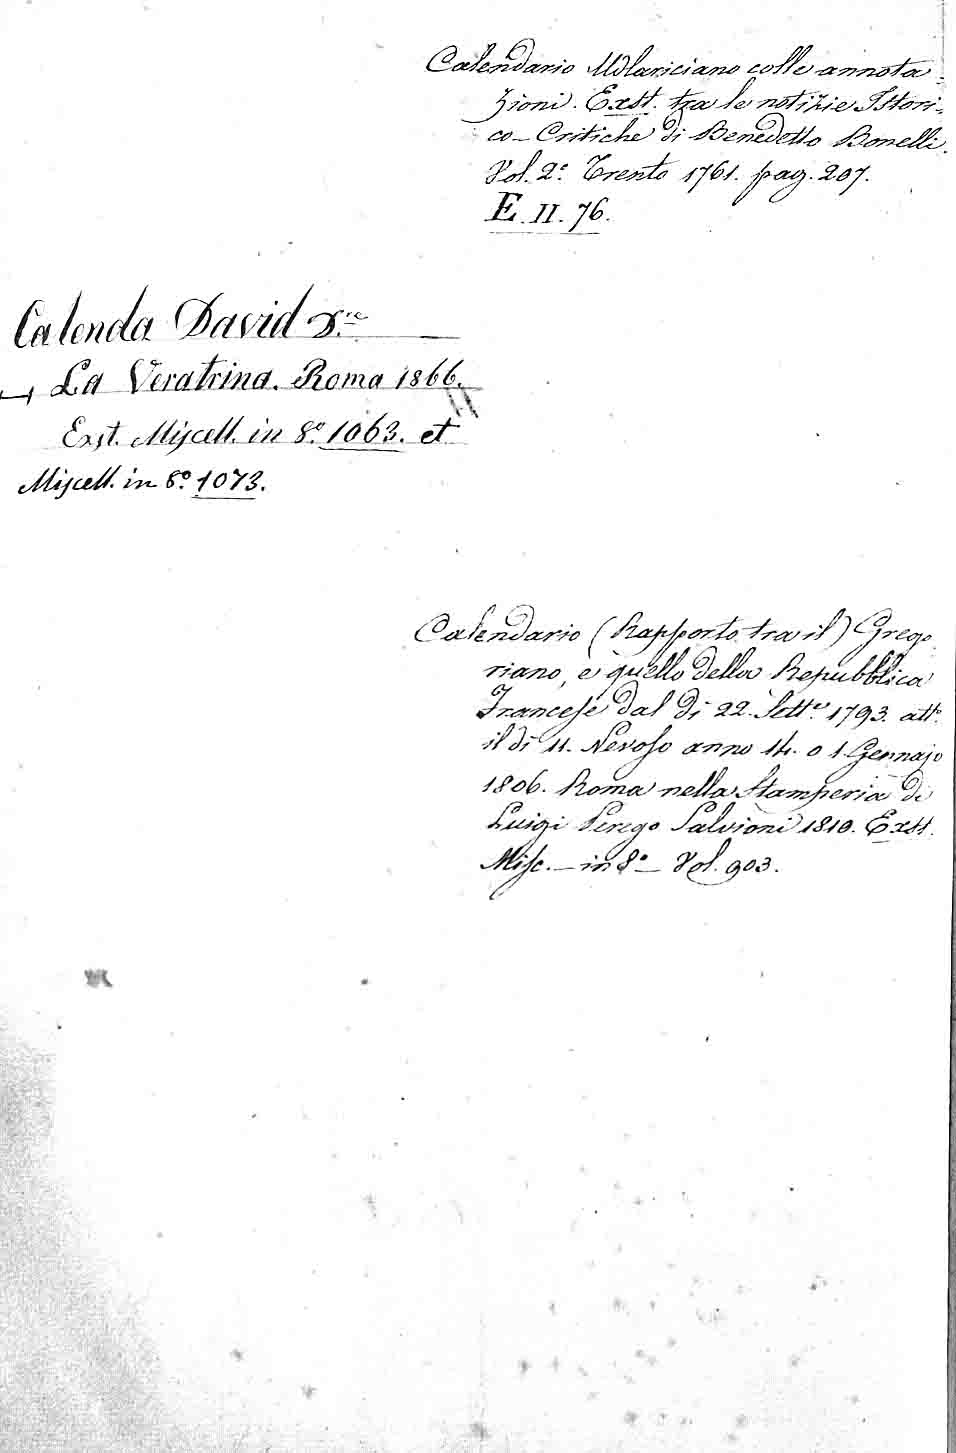 Calendario Udlariciano colle annota-
zioni. Exst. tra le notizie Istori-
co-Critiche di Benedetto Bonelli.
Vol. 2.° Trento 1761. pag. 207.
E. II. 76.
Calenda David D.re
La Veratrina. Roma 1866.
Exst. Miscell. in 8.° 1063. et
Miscell. in 8.° 1073.
Calendario (Rapporto tra il) Grego
riano, e quello della Repubblica
Francese dal dì 22. Sett.e 1793. att.°
il dì 11. Nevoso anno 14. o 1. Gennajo
1806. Roma nella Stamperia di
Luigi Perego Salvioni 1810. Exst.
Misc. – in 8.° – Vol. 903.